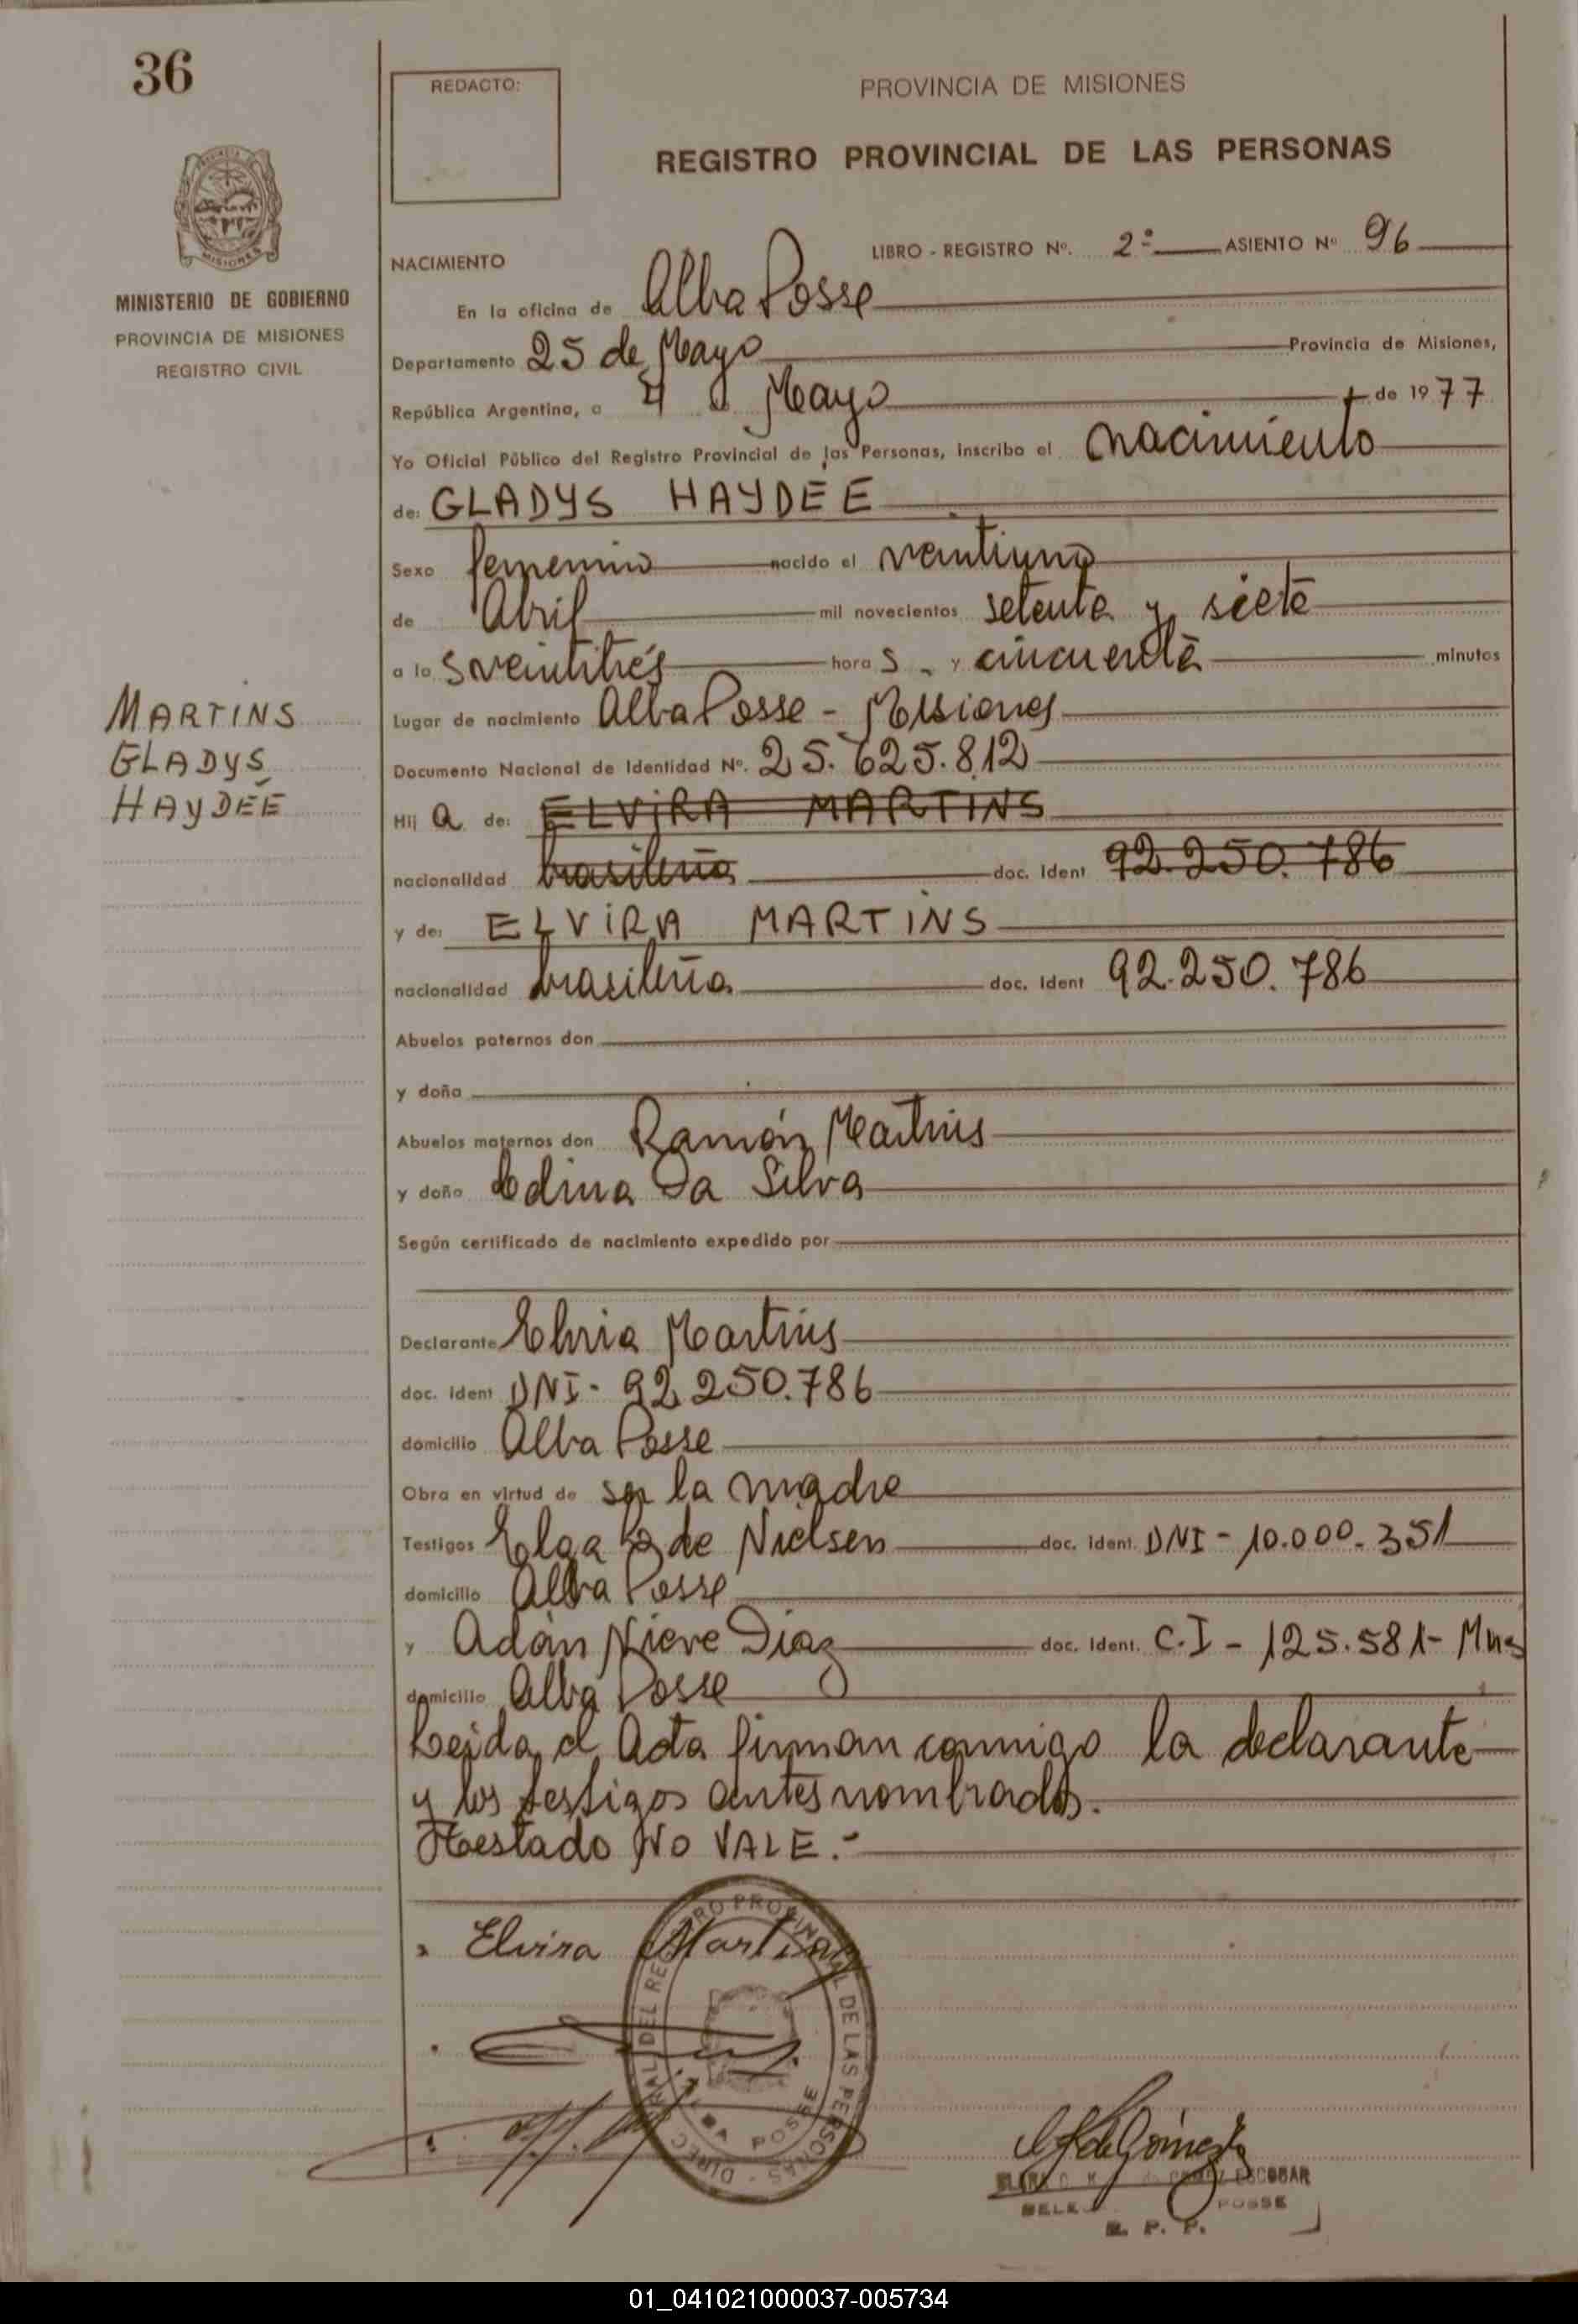 36
REDACTO:
PROVINCIA DE MISIONES
REGISTRO PROVINCIAL DE LAS PERSONAS
MISIONES
MINISTERIO DE GOBIERNO
PROVINCIA DE MISIONES
REGISTRO CIVIL
LIBRO - REGISTRO Nº. 2º ASIENTO Nº 96
NACIMIENTO
En la oficina de Alba Posse
Departamento 25 de Mayo Provincia de Misiones,
República Argentina, a 4 d Mayo de 1977
Yo Oficial Público del Registro Provincial de las Personas, inscribo el nacimiento
de: GLADYS HAYDÉE
Sexo femenino nacido el veintiuno
de Abril mil novecientos setenta y siete
a las veintitrés horas y cincuenta minutos
MARTINS
GLADYS
HAYDÉE
Lugar de nacimiento Alba Posse - Misiones
Documento Nacional de Identidad Nº. 25.625.812
Hija de: ELVIRA MARTINS
nacionalidad brasileña doc. Ident 92.250.786
y de: ELVIRA MARTINS
nacionalidad brasileña doc. Ident 92.250.786
Abuelos paternos don
y doña
Abuelos maternos don Ramón Martins
y doña Edina Da Silva
Según certificado de nacimiento expedido por
Declarante Elviria Martins
doc. Ident DNI - 92.250.786
domicilio Alba Posse
Obra en virtud de ser la madre
Testigos Elga de Nielsen doc. Ident. DNI - 10.000.351
domicilio Alba Posse
y Adán Nieve Diaz doc. Ident. C.I - 125.581 - Mnes
domicilio Alba Posse
Leída el Acta firman conmigo la declarante
y los testigos antes nombrados.
Testado NO VALE.-
Elvira Martins
DIREC RAL DEL REGISTRO PROVINCIAL DE LAS PERSONAS
ALBA POSSE
de Gómez
GOMEZ ESCOBAR
POSSE
R. P. P.
01_041021000037-005734